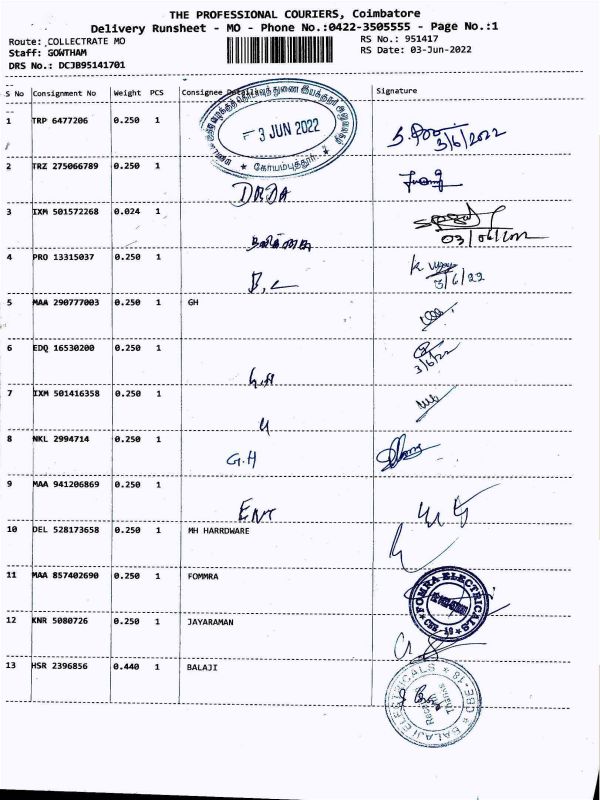 THE PROFESSIONAL COURIERS, Coimbatore
Delivery Runsheet - MO - Phone No.:0422-3505555 - Page No.:1
Route: COLLECTRATE MO RS No.: 951417
Staff: GOWTHAM RS Date: 03-Jun-2022
DRS No.: DCJB95141701
S No Consignment No Weight PCS Consignee Details Signature
3 JUN 2022
கோயம்புத்தூர்
1 TRP 6477206 0.250 1 3/6/2022
2 TRZ 275066789 0.250 1
DRDA
3 IXM 501572268 0.024 1
03/06/2022
4 PRO 13315037 0.250 1
3/6/22
5 MAA 290777003 0.250 1 GH
6 EDQ 16530200 0.250 1
3/6/22
G.H
7 IXM 501416358 0.250 1
8 NKL 2994714 0.250 1
G.H
9 MAA 941206869 0.250 1
ENT
10 DEL 528173658 0.250 1 MH HARRDWARE
11 MAA 857402690 0.250 1 FOMMRA
FOMRA ELECTRICALS
CBE-18
12 KNR 5080726 0.250 1 JAYARAMAN
13 HSR 2396856 0.440 1 BALAJI
BALAJI ELECTRICALS CBE-18